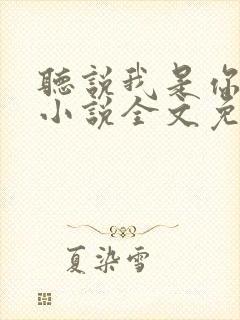 聽說我是你
小說全文免
夏染雪